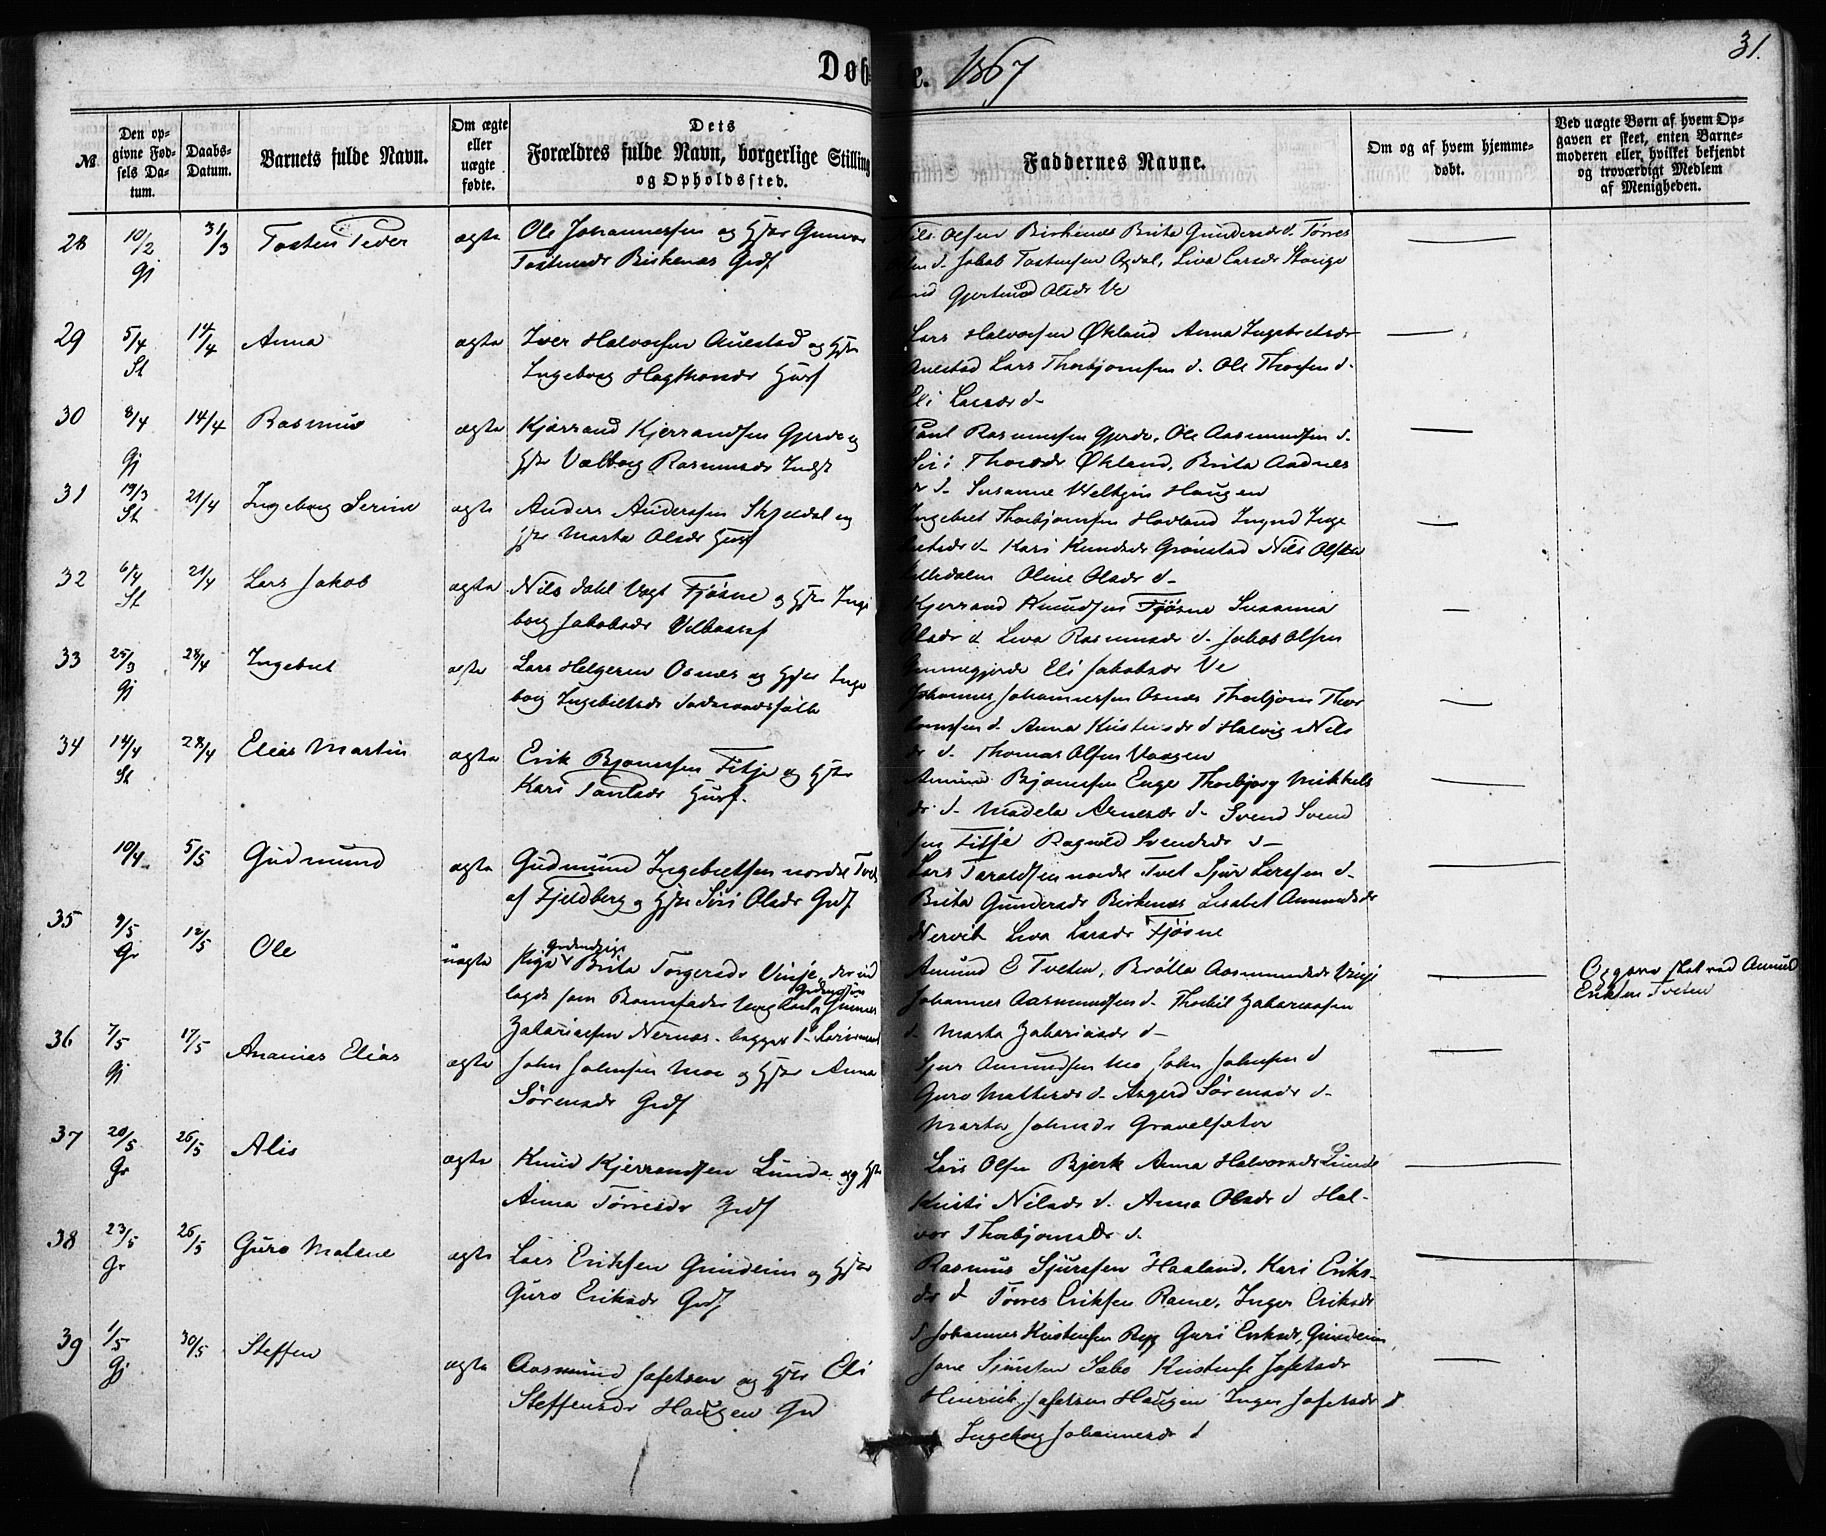 Døb e. 1867
31.
№
Den op-
givne Fød-
sels Da-
tum.
Daabs-
Datum.
Barnets fulde Navn.
Om ægte
eller
uægte
fødte.
Dets
Forældres fulde Navn, borgerlige Stilling
og Opholdssted.
Faddernes Navne.
Om og af hvem hjemme-
døbt.
Ved uægte Børn af hvem Op-
gaven er skeet, enten Barne-
moderen eller hvilket bekjendt
og troværdigt Medlem
af Menigheden.
28 10/2 Gj 31/3 Tosten Peder ægte Ole Johannessen og Hstr Gunvor
Tostensdr Birkenæs Grdf
Olsen Birkenæs Brita Gundersdr d. Tørres
d. Jakob Tostensen Agdal, Siva Larsdr Stange
Gjertrud Olsdr Ve
29 5/4 St 14/4 Anna ægte Iver Halvorsen Auestad og Hstr
Ingeborg Hagthorsdr Husf
Lars Halvorsen Økland Anna Ingebretsdr
Auestad Lars Thorbjørnsen d. Ole Thorsen d.
Eli Larsdr d-
30 8/4 Gj 14/4 Rasmus ægte Kjærrand Kjerrandsen Gjerde og
Hstr Valborg Rasmusdr Indst
Poul Rasmussen Gjerde, Ole Aasmundsen d.
Siri Thorsdr Økland, Brita Aadnes
dr d- Susanne Weltzin Haugen
31 19/3 St 21/4 Ingeborg Serine ægte Anders Anderssen Skjeldal og
Hstr Marta Olsdr Husf
Ingebret Thorbjørnsen Hovland Ingrid Inge
bretsdr d- Kari Knudsdr Grønstad Nils Olsen
Oline Olsdr d-
32 6/4 St 21/4 Lars Jakob ægte Nils Dahl Vogt Fjøsne og Hstr Inge
borg Jakobsdr
Kjerrand Knudsen Fjøsne Susanna
Olsdr d Siva Rasmusdr d. Jakob Olsen
Eli Jakobsdr Ve
33 25/3 Gj 28/4 Ingebret ægte Lars Helgesen Osnes og Hstr Inge
borg Ingebretsdr
Johannes Johannessen Osnes Thorbjørn Thor
børnsen d. Anna Kristensdr d Halvig Nils
dr d. Thomas Olsen Vaagen
34 14/4 St 28/4 Elias Martin ægte Erik Bjørnsen Fitje og Hstr
Kari Poulsdr Husf.
Amund Bjørnsen Enge Thorbjørg Mikkels
dr d- Madela Arnesdr d- Svend Svend
sen Fitje Ragnild Svendsdr d-
10/4 5/5 Gudmund ægte Gudmund Ingebretsen nordre Tvet
af Fjeldberg og Hstr Siri Olsdr Grdf
Lars Taraldsen nordre Tvet Sjur Larsen d-
Brita Gundersdr Birkenæs Lisabet Amundsdr
Nervik Siva Larsdr Fjøsne
35 9/5 Gr 12/5 Ole uægte Pige Brita Torgersdr Vinje, der ud
lagde som Barnefader Ungkarl Gunner
Zakariassen Nernæs. begge d-
Amund E Tveten, Brølla Aasmundsdr Vinje
Johannes Aasmundsen d- Thorkil Zakariassen
d- Marta Zakariasdr d-
Opgave sket ved Amund
Eriksen Tveten
36 7/5 Gj 17/5 Ananias Elias ægte John Johnsen Moe og Hstr Anna
Sørensdr Grdf
Sjur Amundsen Mo John Johnsen d
Guro Mattesdr d- Asgerd Sørensdr d-
Marta Johnsdr Gravelsæter
37 20/5 Gr 26/5 Alis ægte Knud Kjerrandsen Lunde og Hstr
Anna Tørresdr Grdf
Lars Olsen Bjerk Anna Halvorsdr Lunde
Kristi Nilsdr d. Anna Olsdr d Hal-
vor Thorbjørnsdr d.
38 23/5 Gr 26/5 Guro Malene ægte Lars Eriksen Grindeim og Hstr
Guro Eriksdr Grdf
Rasmus Sjurssen Haaland, Kari Eriks-
dr d Tørres Eriksen Rame, Inger Eriksdr
d Johannes Kristensen Røg Guri Eriksdr, Grindeim
39 1/5 Gj 30/5 Steffen ægte Aasmund Jafetsen og Hstr Eli
Steffensdr Haugen Grd
Jone Simsten Sæbø Kristense Jafetsdr
Hinrik Jafetsen Haugen Inger Jafetsdr d
Ingeborg Johannesdr d